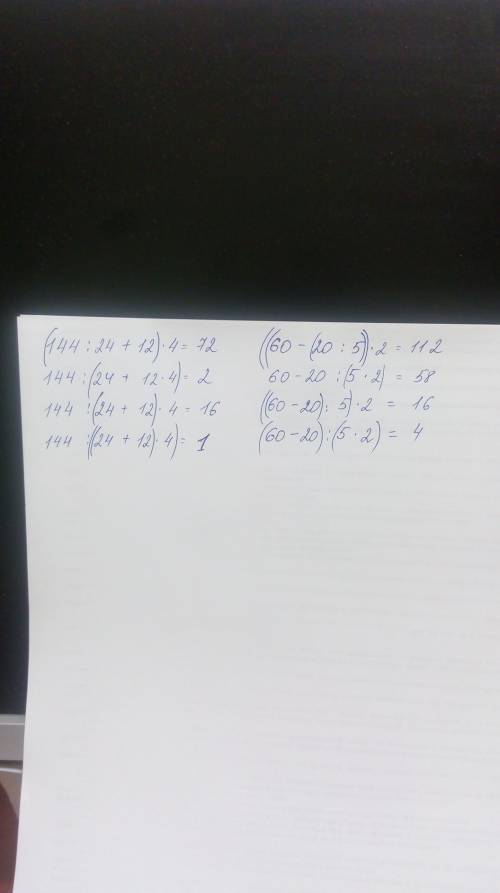 (144 : 24 + 12) · 4 = 72
144 : (24 + 12 · 4) = 2
144 : (24 + 12) · 4 = 16
144 : ((24 + 12) · 4) = 1
((60 - (20 : 5)) · 2 = 112
60 - 20 : (5 · 2) = 58
((60 - 20) : 5) · 2 = 16
(60 - 20) : (5 · 2) = 4